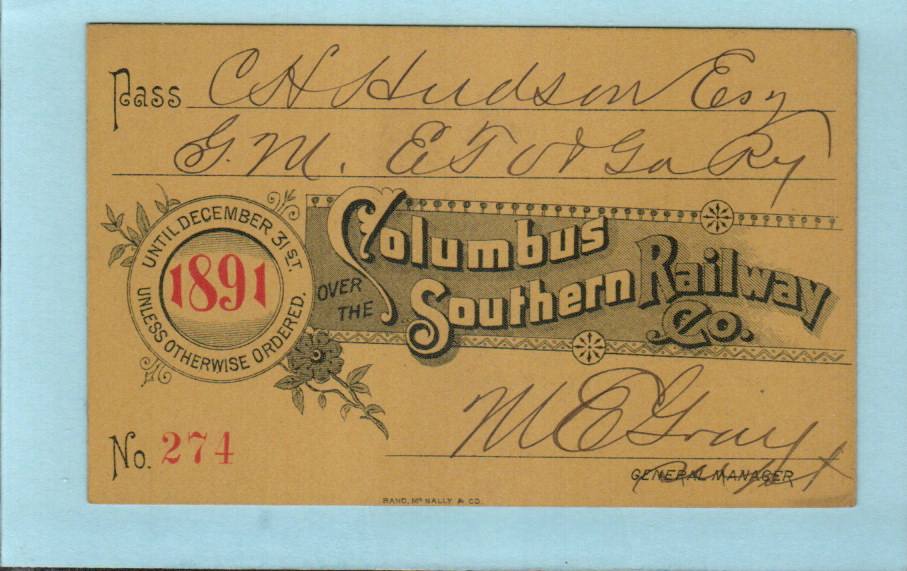 Pass C H Hudson Esq
G. M. E T V & Ga Ry
UNTIL DECEMBER 31 ST.
1891
UNLESS OTHERWISE ORDERED.
OVER THE
Columbus
Southern Railway
Co.
No. 274
M E Gray
GENERAL MANAGER
RAND, McNALLY & CO.